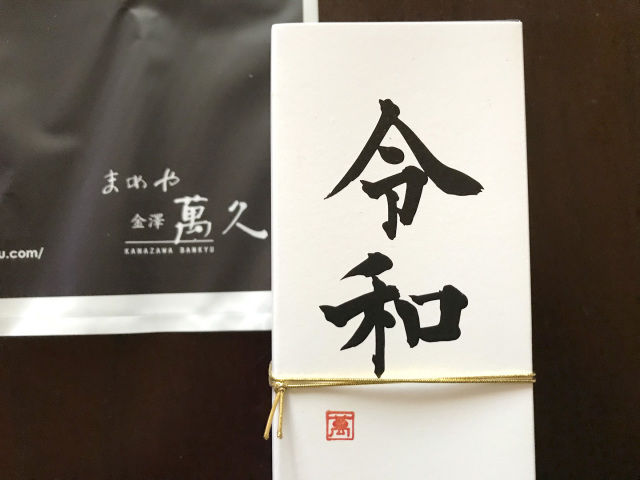 まめや
金澤 萬久
KANAZAWA BANKYU
u.com/
令
和
萬